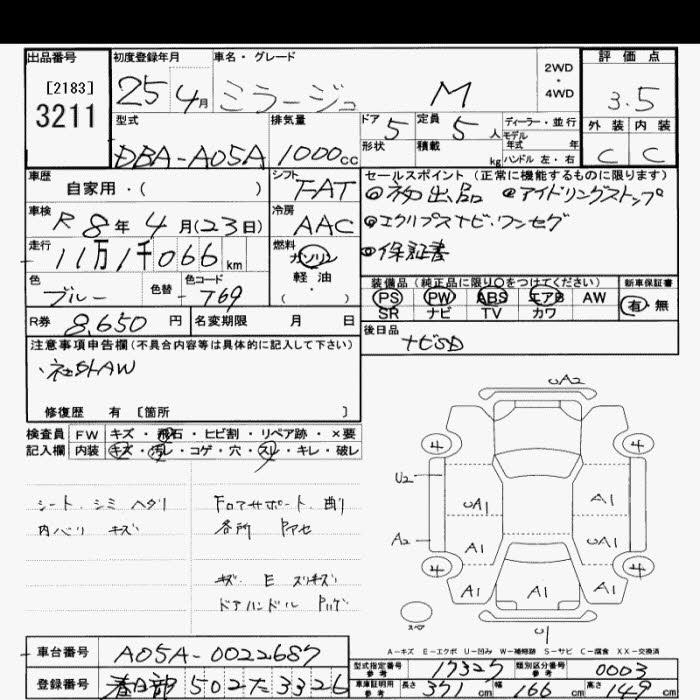 出品番号
[2183]
3211
初度登録年月
25 4月
車名・グレード
ミラージュ M
2WD
・
4WD
評価点
3.5
外装 内装
C C
型式
DBA-A05A
排気量
1000cc
ドア 5
定員 5人
ディーラー・並行
モデル
年式 年
形状
積載 kg
ハンドル 左・右
車歴
自家用・( )
シフト
FAT
セールスポイント(正常に機能するものに限ります)
初出品 アイドリングストップ
エクリプスナビ・ワンセグ
保証書
車検
R 8年 4月(23日)
冷房
AAC
走行
11万1千066 km
燃料
ガソリン
軽・油
・( )
色
ブルー
色替
色コード
T69
装備品(純正品に限り○をつけてください)
PS PW ABS エアB AW
SR ナビ TV カワ
新車保証書
有・無
R券 8,650円
名変期限 月 日
後日品
ナビSD
注意事項申告欄(不具合内容等は具体的に記入して下さい)
・社外AW
修復歴 有 [箇所 ]
検査員
記入欄
FW キズ・飛石・ヒビ割・リペア跡・×要
内装 キズ・汚レ・コゲ・穴・スレ・キレ・破レ
シート、シミ ヘタリ
内バリ キズ
Fロアサポート、曲り
各所
キズ E スリキズ
ドアハンドル
UA2
4 4
U2
UA1 A1
A2
A1 UA1
4 4
A1 A1 A1
スペア
U1
A-キズ E-エクボ U-凹み W-補修跡 S-サビ C-腐食 XX-交換済
車台番号 A05A-0022687
登録番号 春日部 502た3326
型式指定番号
参考
17327
類別区分番号
参考
0003
車庫証明用
参考
長さ 371cm 幅 166cm 高さ 149cm